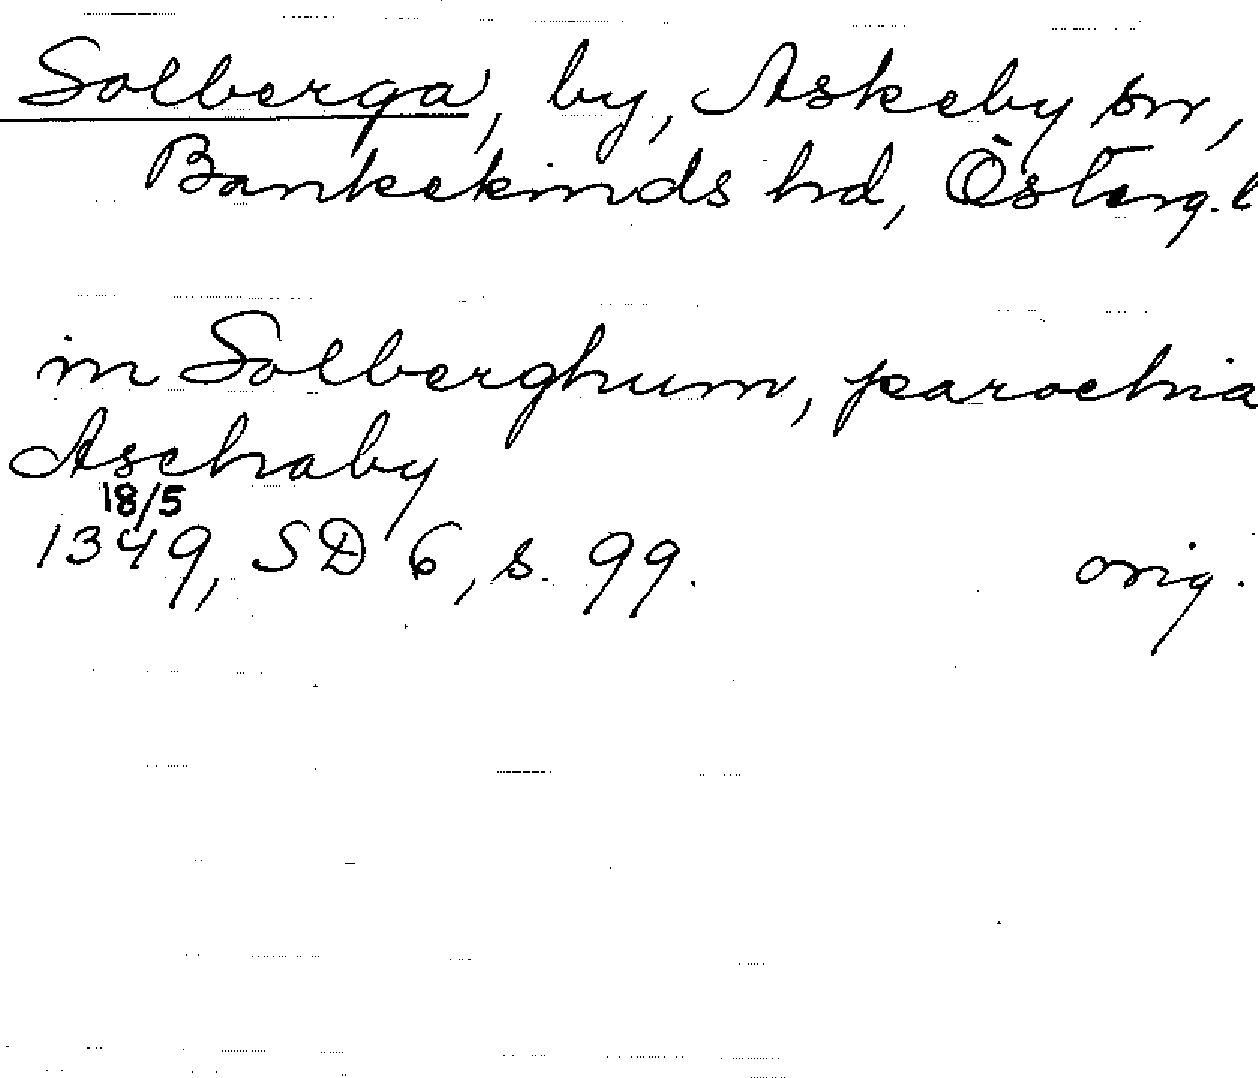 Solberga, by, Askeby sn,
Bankekinds hd, Österg. l
in Solberghum, parochia
Aschaby
18/5
1349, SD 6, s. 99. orig.